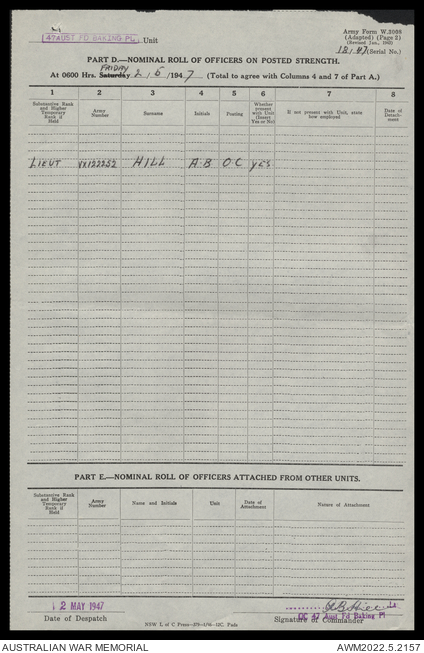 47 AUST FD BAKING PL. Unit
Army Form W.3008
(Adapted) (Page 2)
(Revised Jan., 1945)
18/47 (Serial No.)
PART D.—NOMINAL ROLL OF OFFICERS ON POSTED STRENGTH.
FRIDAY
At 0600 Hrs. Saturday 2/5/1947 (Total to agree with Columns 4 and 7 of Part A.)
1 2 3 4 5 6 7 8
Substantive Rank and Higher Temporary Rank if Held Army Number Surname Initials Posting Whether present with Unit (Insert Yes or No) If not present with Unit, state how employed Date of Detachment
LIEUT VX122252 HILL A.B O.C YES
PART E.—NOMINAL ROLL OF OFFICERS ATTACHED FROM OTHER UNITS.
Substantive Rank and Higher Temporary Rank if Held Army Number Name and Initials Unit Date of Attachment Nature of Attachment
2 MAY 1947
ABHill Lt
OC 47 Aust Fd Baking Pl
Date of Despatch Signature of Commander
NSW L of C Press
AUSTRALIAN WAR MEMORIAL AWM2022.5.2157